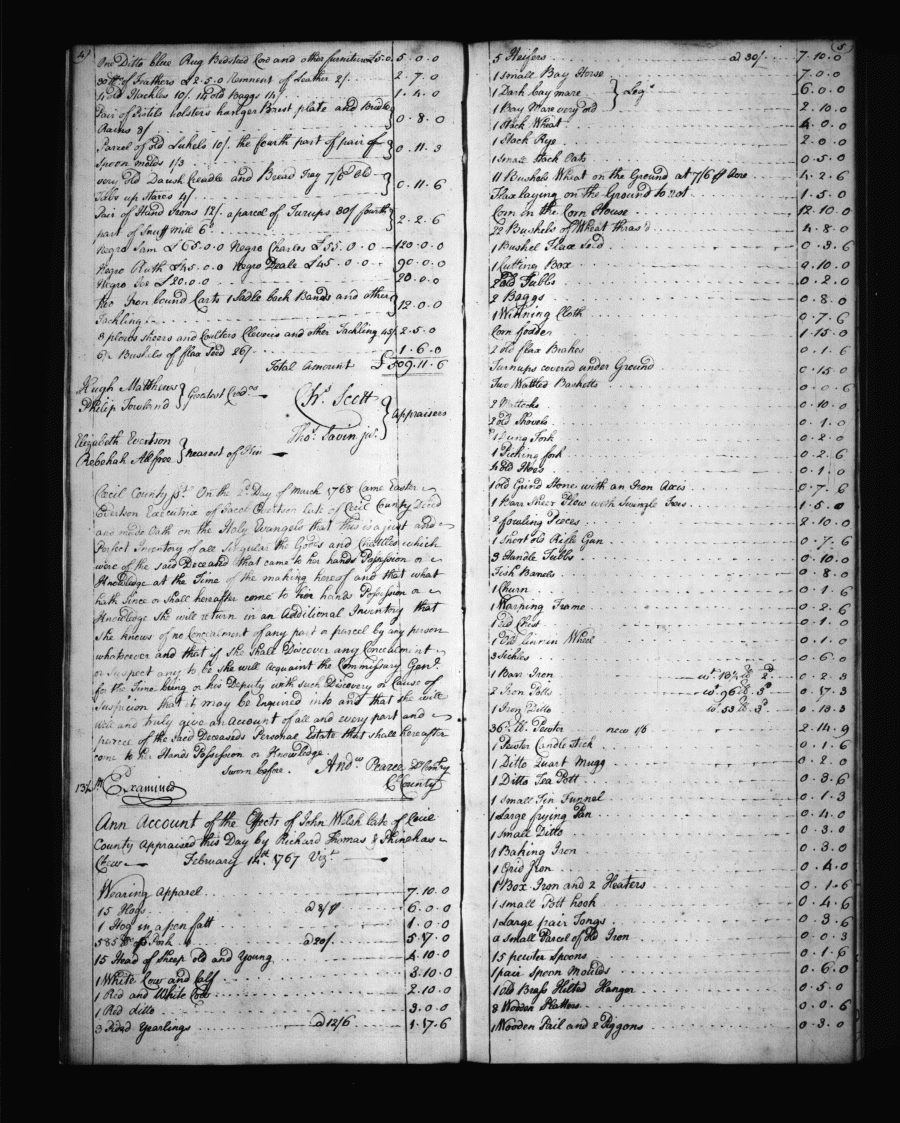 4
One Ditto blue Rug Bedsteed Cord and other furniture £5.0 5.0.0
30 lb of Feathers £2.5.0 Remnent of Leather 2/ 2.7.0
4 old Hackles 10/. 14 old Baggs 14/ 1.4.0
Pair of Pistils holsters hanger Brest plate and Bridle
Rains 8/ 0.8.0
Parcel of old Sickels 10/. the fourth part of pair of
Spoon molds 1/3 0.11.3
very old Danish Creadle and Bread Tray 7/6 old
Tubs up Stares 4/. 0.11.6
Pair of Hand Irons 12/. a parcel of Turups 30/ fourth
part of Snuff Mill 6d 2.2.6
Negro Sam £65.0.0 Negro Charles £55.0.0 120.0.0
Negro Ruth £45.0.0 Negro Deale £45.0.0 90.0.0
Negro Joe £20.0.0 20.0.0
two Iron bound Carts 1 Sadle back Bands and other
Tackling 12.0.0
3 plows sheers and Coulters Cleveris and other Tackling 45/. 2.5.0
6½ Bushels of flax Seed 26/. 1.6.0
Total Amount £309.11.6
Hugh Matthews
Philip Fowland } Greatest Credrs
Chs. Scott
Thos. Savin jur. } Appraisers
Elizabeth Evertson
Rebekah Allfree } nearest of Kin
Cecil County sst. On the 2d. Day of March 1768 Came Easter
Evertson Executrix of Jacob Evertson late of Cecil County Deced
and made Oath on the Holy Evangels that this is a just and
Perfect Inventory of all Singular the Goods and Chattles which
were of the said Deceased that came to her hands Possession or
Knowledge at the Time of the making hereof and that what
hath Since or shall hereafter come to her hands Possession or
Knowledge she will return in an Additional Inventory that
she knows of no Concealment of any part or parcel by any person
whatsoever and that if she Shall Discover any Concealment
or Suspect any to be she will Acquaint the Commissary Genl.
for the Time being or his Deputy with such Discovery or Cause of
Suspicion that it may be Enquired into and that she will
will and truly give an Account of all and every part and
parcel of the said Deceaseds Personal Estate that shall hereafter
come to her Hands Possession or Knowledge.
Sworn before. Andw Pearce Dy Comry
Cl County
Examined
Ann Account of the Effects of John Welsh late of Cecil
County Appraised this Day by Richard Thomas & Phinehas
Chew February 14th. 1767 Vizt
Wearing Apparel 7.10.0
15 Hogs @8/ 6.0.0
1 Hog in a pen fatt 1.0.0
585 lb of Pork @20/. 5.17.0
15 Head of Sheep old and Young 4.10.0
1 White Cow and Calf 3.10.0
1 Red and White Cow 2.10.0
1 Red ditto 3.0.0
3 Read Yearlings @12/6 1.17.6
5
5 Heifers @30/. 7.10.0
1 small Bay Horse 7.0.0
1 Dark bay mare 6.0.0
1 Bay Mare very old 2.10.0
1 Stack Wheat 4.0.0
1 Stack Rye 2.0.0
1 Small Stack Oats 0.5.0
11 Bushels Wheat on the Ground at 7/6 P Acre 4.2.6
Flax laying on the Ground to rot 1.5.0
Corn in the Corn House 12.10.0
22 Bushels of Wheat thras'd 4.8.0
1 Bushel Flax Seed 0.3.6
1 Cutting Box 0.10.0
2 old Tubbs 0.2.0
2 Baggs 0.8.0
1 Winning Cloth 0.7.6
Corn fodder 1.15.0
2 old flax Brakes 0.1.6
Turnups covered under Ground 0.15.0
Two Wattled Basketts 0.0.6
2 Mattocks 0.10.0
2 old Shovels 0.1.0
1 Dung Fork 0.2.0
1 Pitching fork 0.2.6
4 old Hoes 0.1.0
1 old Grind Stone with an Iron Axis 0.7.6
1 Barr Sheer Plow with Swingle Trees 1.5.0
2 fowling Pieces 2.10.0
1 Short old Rifle Gun 0.7.6
3 Handle Tubbs 0.10.0
Fish Barrels 0.8.0
1 Churn 0.1.6
1 Warping Frame 0.2.6
1 old Chest 0.1.0
1 Old Linnin Wheel 0.1.0
3 Sickles 0.6.0
1 Barr Iron wt. 10½ lb 2d. 0.2.3
2 Iron Potts wt. 96 lb. 3d 0.17.3
1 Iron Ditto wt. 53 lb. 3d. 0.13.3
36½ lb. Pewter new 1/6 2.14.9
1 Pewter Candlestick 0.1.6
1 Ditto Quart Mugg 0.2.0
1 Ditto Tea Pott 0.3.6
1 Small Tin Funnel 0.1.3
1 Large frying Pan 0.4.0
1 small Ditto 0.3.0
1 Baking Iron 0.3.0
1 Grid Iron 0.4.0
1 Box Iron and 2 Heaters 0.1.6
1 small Pott hook 0.4.6
1 Large pair Tongs 0.3.6
a small Parcel of Old Iron 0.0.3
15 pewter Spoons 0.1.6
1 pair Spoon Moulds 0.6.0
1 old Brass Hilted Hanger 0.5.0
8 Wooden Platters 0.0.6
1 Wooden Pail and 2 Piggons 0.3.0